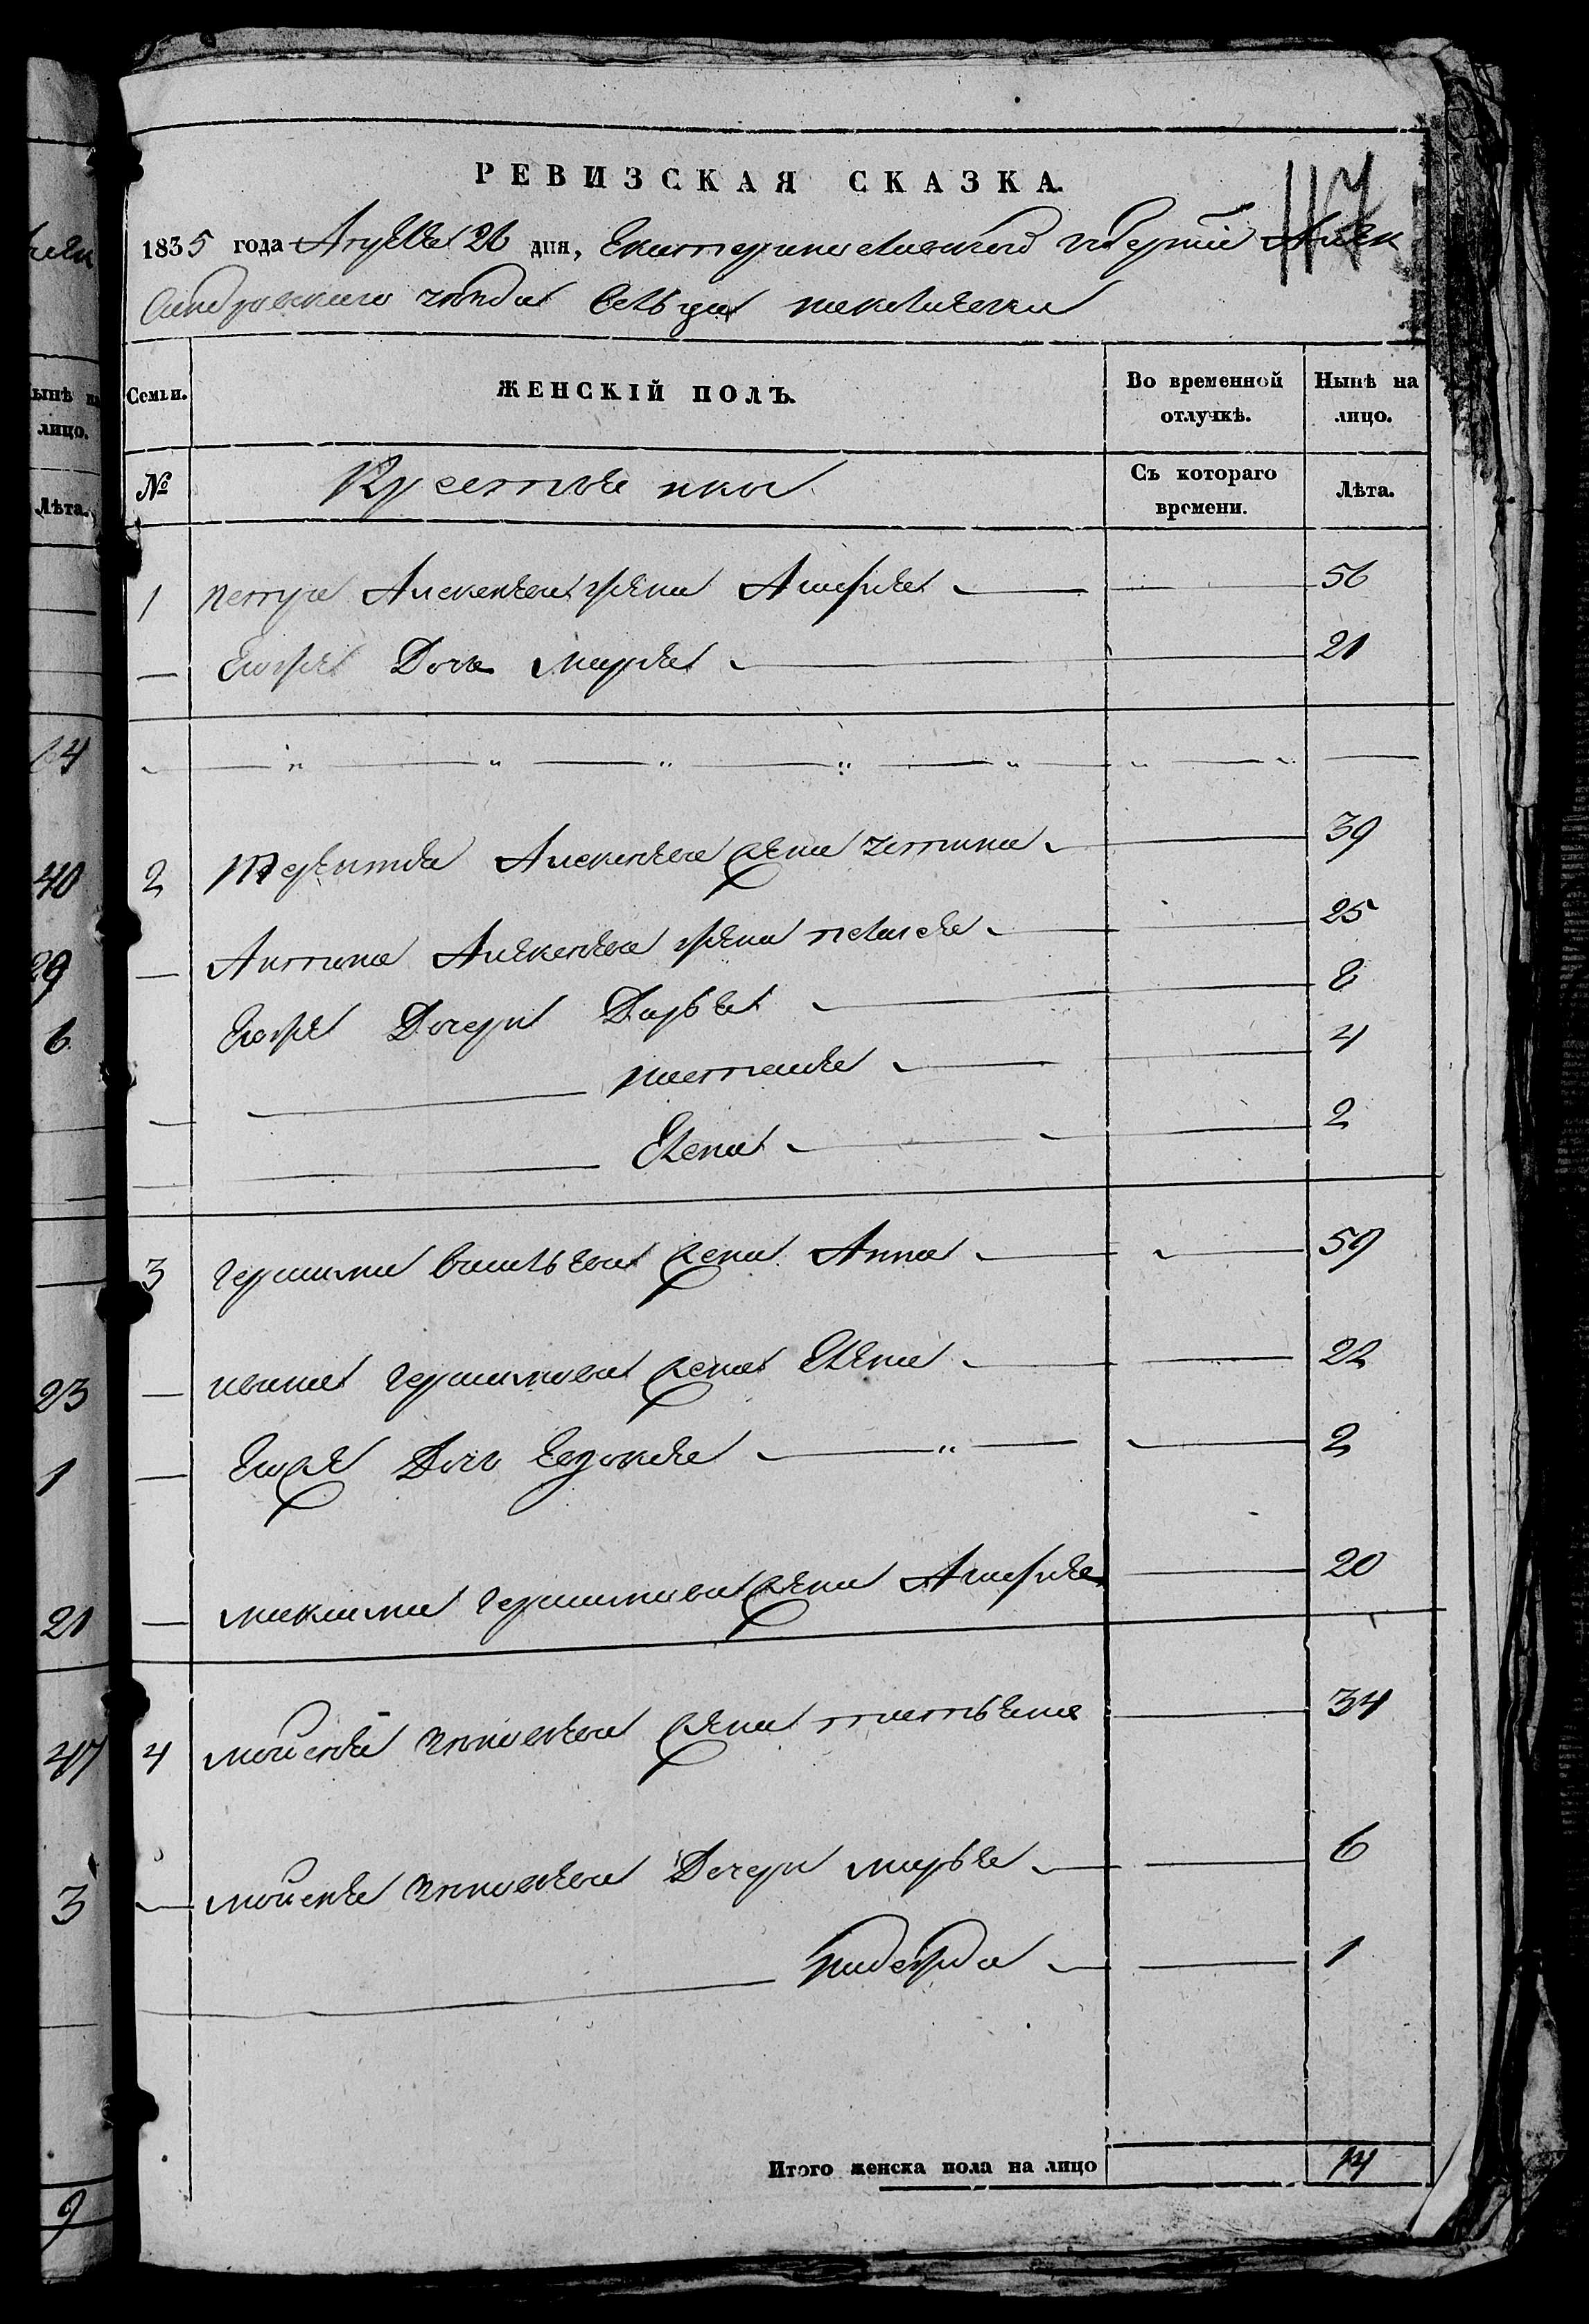 117
РЕВИЗСКАЯ СКАЗКА.
1835 года Августа 26 дня, Екатеринославской губернии Алек
сандровскаго уезда Сельца
ынѣ на лицо.
Семьи.
ЖЕНСКІЙ ПОЛЪ.
Во временной отлучкѣ.
Нынѣ на лицо.
Лѣта.
№
Крестьянки
Съ котораго времени.
Лѣта.
1 Петра Алексеева жена Агафия 56
— Егоже Дочь Мария 21
64
2 Терентия Алексеева жена Устина 39
40
Антона Алексеева жена Пелагея 25
29
Егоже Дочери Дарья 8
6
Настасия 4
Елена 2
3 Герасима Васильева жена Анна 59
Ивана Герасимова жена Елена 22
23
Егоже Дочь Евдокия 2
1
Максима Герасимова жена Агафия 20
21
4 Мойсея жена Татьяна 34
47
Мойсея Дочери Марья 6
3
Надежда 1
Итого женска пола на лицо 14
9